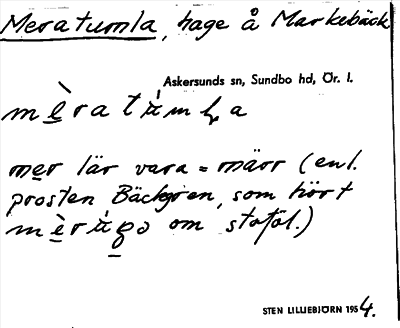 Meratumla, hage å Markebäck
Askersunds sn, Sundbo hd, Ör. l.
mer lär vara = märr (enl.
prosten Bäckgren, som hört
om stoföl.)
STEN LILLIEBJÖRN 1954.